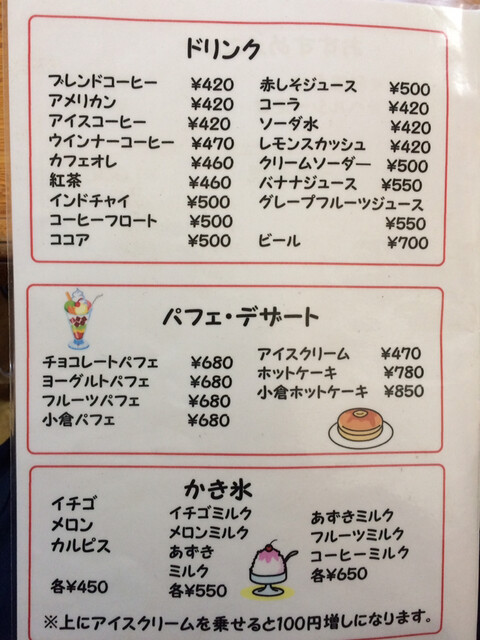 ドリンク
ブレンドコーヒー ¥420
アメリカン ¥420
アイスコーヒー ¥420
ウインナーコーヒー ¥470
カフェオレ ¥460
紅茶 ¥460
インドチャイ ¥500
コーヒーフロート ¥500
ココア ¥500
赤しそジュース ¥500
コーラ ¥420
ソーダ水 ¥420
レモンスカッシュ ¥420
クリームソーダー ¥500
バナナジュース ¥550
グレープフルーツジュース
¥550
ビール ¥700
パフェ・デザート
チョコレートパフェ ¥680
ヨーグルトパフェ ¥680
フルーツパフェ ¥680
小倉パフェ ¥680
アイスクリーム ¥470
ホットケーキ ¥780
小倉ホットケーキ ¥850
かき氷
イチゴ
メロン
カルピス
各¥450
イチゴミルク
メロンミルク
あずき
ミルク
各¥550
あずきミルク
フルーツミルク
コーヒーミルク
各¥650
※上にアイスクリームを乗せると100円増しになります。